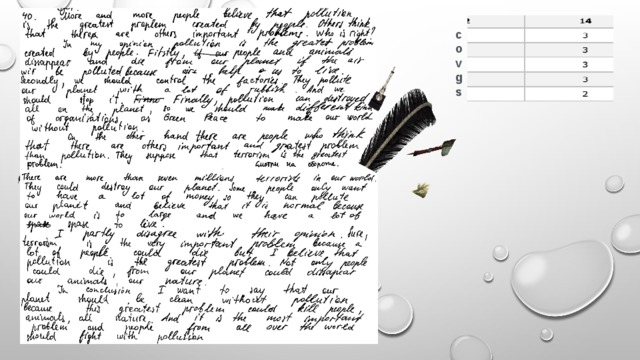 40. More and more people believe that pollution
is the greatest problem created by people. Others think
that there are others important problems. Who is right?
In my opinion pollution is the greatest problem
created by people. Firstly, our people and animals
disappear and die from our planet if the air
will be polluted because air help us to live.
Secondly we should control the factories. They pollute
our planet with a lot of rubbish. And we
should stop it. Finally, pollution can destroyed
all on the planet, so we should make different kind
of organisations, as Green Peace to make our world
without pollution.
On the other hand there are people who think
that there are others important and greatest problem
than pollution. They suppose that terrorism is the greatest
problem.
There are more than even millions terrorists in our world.
They could destroy our planet. Some people only want
to have a lot of money, so they can pollute
our planet and believe that it is normal because
our world is to large and we have a lot of
spase to live.
I partly disagree with their opinion. Sure,
terrorism is the very important problem because a
lot of people could die but I believe that
pollution is the greatest problem. Not only people
could die, from our planet could disappear
our animals our nature.
In conclusion I want to say that our
planet should be clean without pollution
because this greatest problem could kill people,
animals, all nature. And it is the most important
problem and people from all over the world
should fight with pollution
14
с 3
о 3
v 3
g 3
s 2